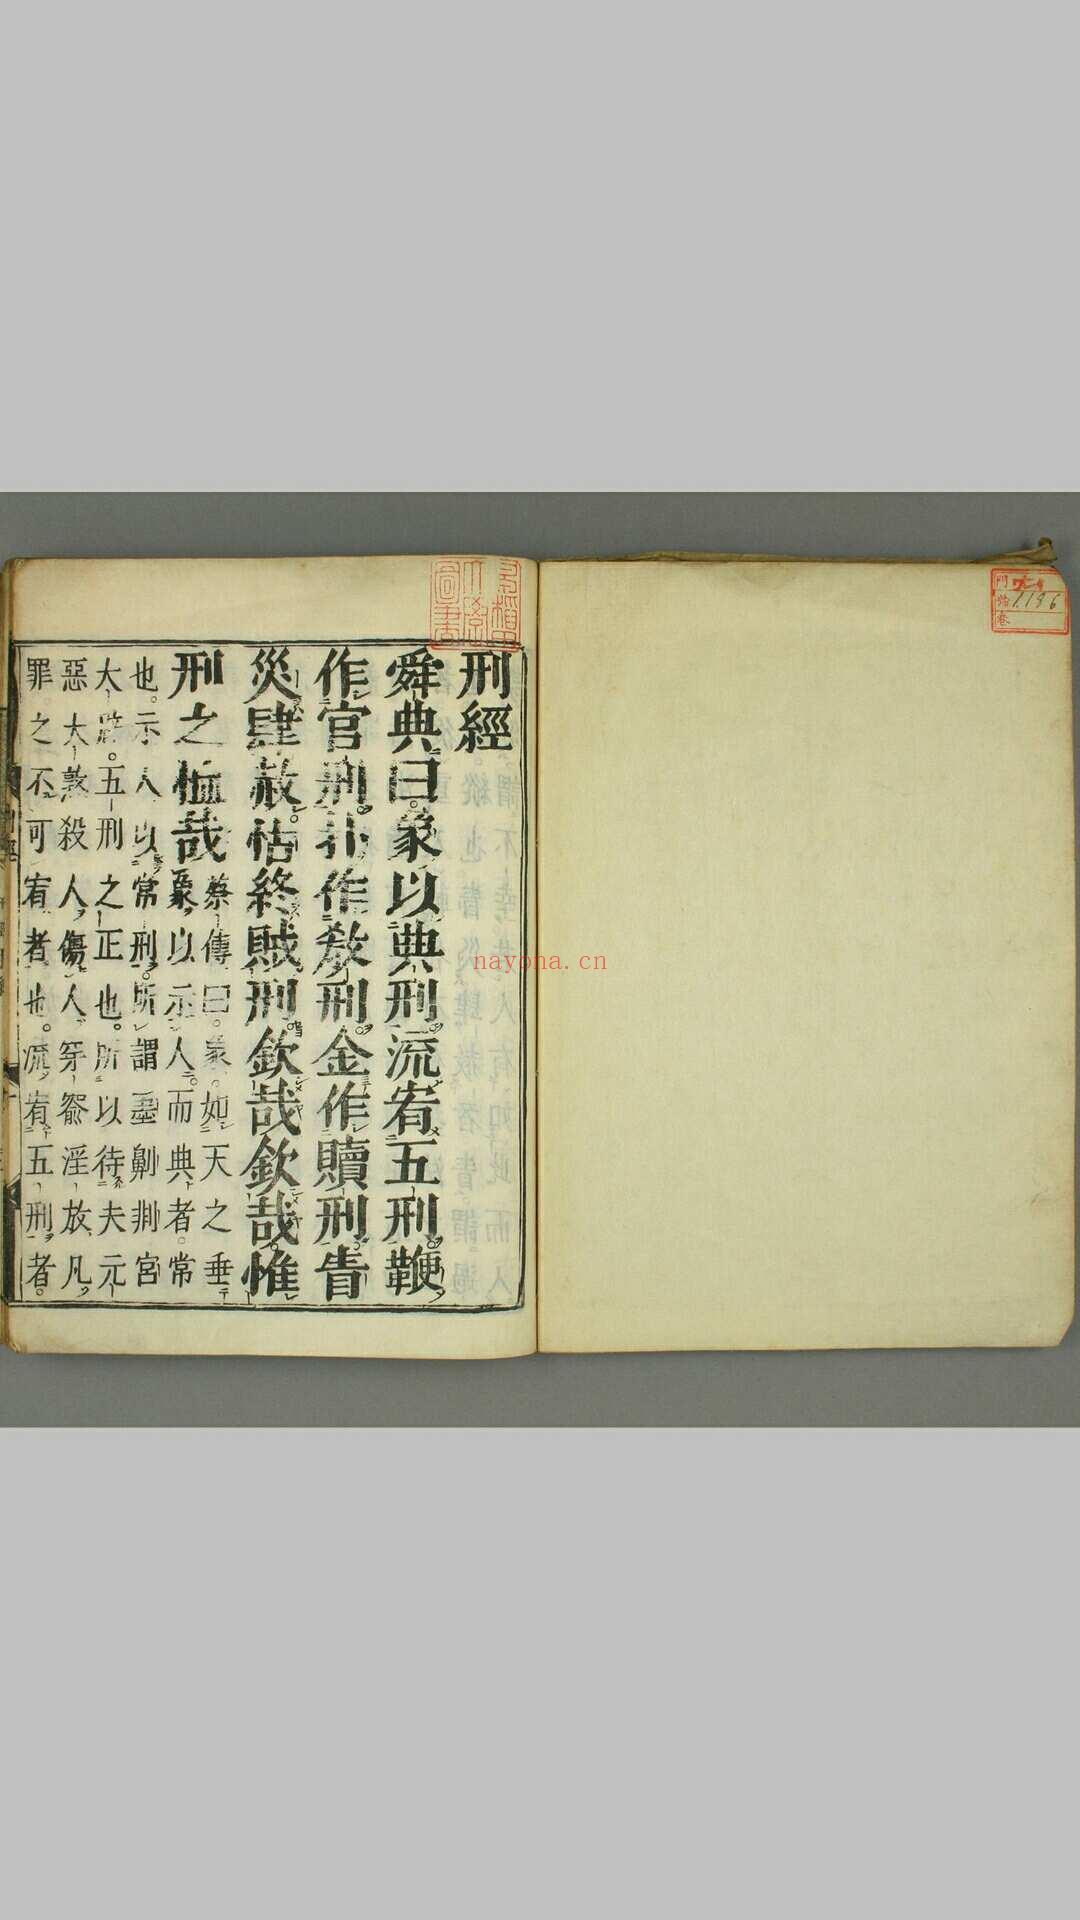 門
號 1186
卷
早稻田大學圖書
刑經
舜典曰。象以典刑。流宥五刑。鞭
作官刑。扑作教刑。金作贖刑。眚
災肆赦。怙終賊刑。欽哉欽哉。惟
刑之恤哉
蔡傳曰。象。如天之垂
象。以示人。而典者。常
也。示人以常刑。所謂墨劓剕宮
大辟。五刑之正也。所以待夫元
惡大憝殺人傷人穿窬淫放。凡
罪之不可宥者也。流宥五刑者。
nayona.cn